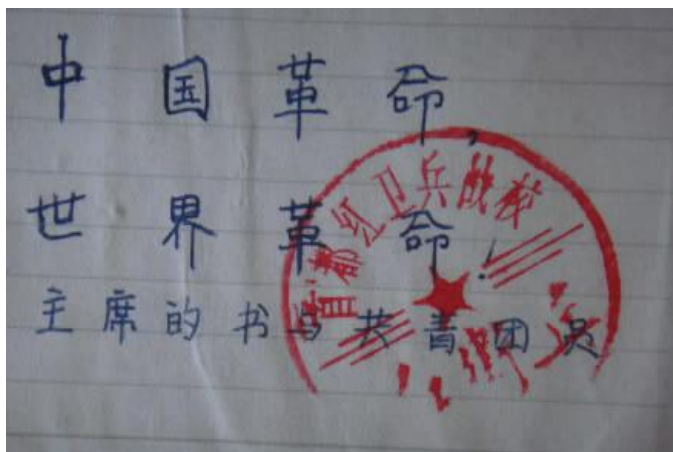 中国革命,
世界革命!
主席的书与共青团员
首都红卫兵战校